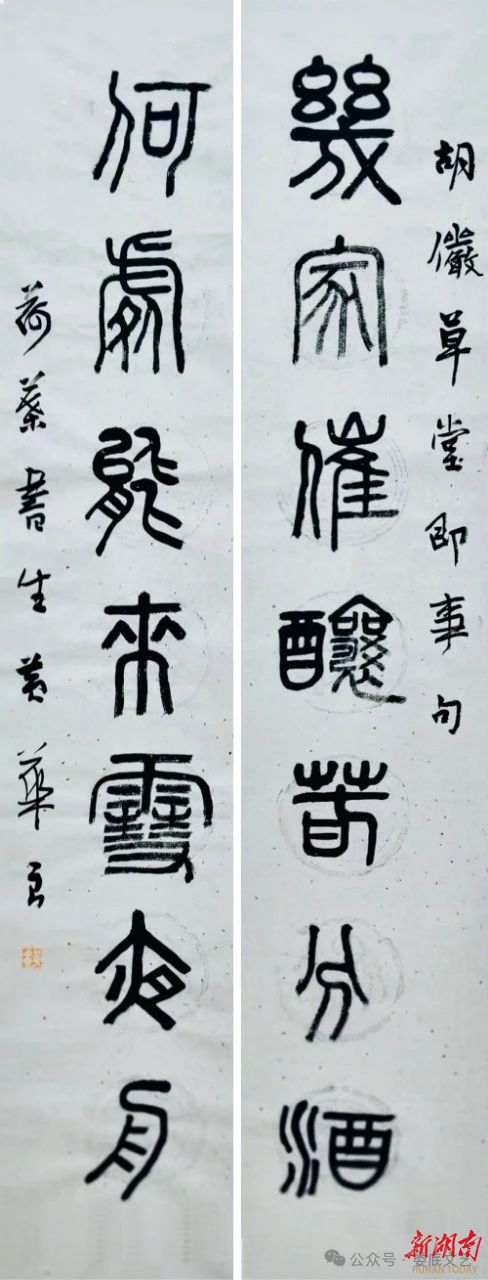 胡儼草堂即事句
幾家催釀春分酒
何處能來雪夜舟
荷葉書生黃華良
公众号·娄底文艺
新湖南
HUNAN TODAY